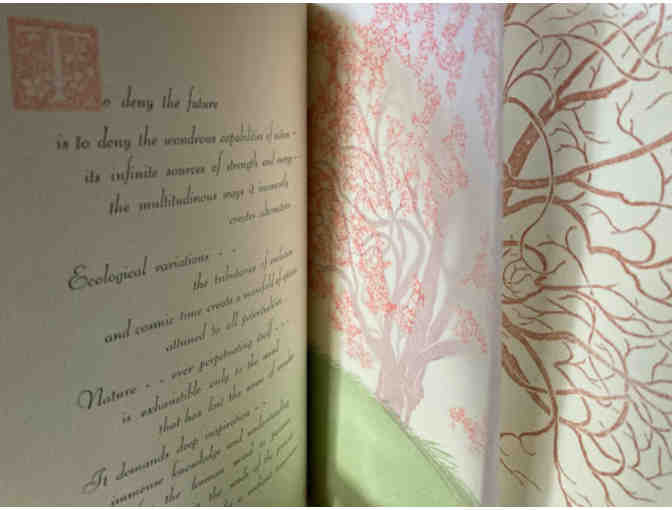 To deny the future
is to deny the wondrous capabilities of nature -
its infinite sources of strength and energy - -
the multitudinous ways it incessantly
creates alternates.
Ecological variations - -
the tributaries of evolution
and cosmic time create a manifold of
attuned to all potentialities.
Nature - - ever perpetuating itself - - -
is exhaustible only to the mind
that has lost the sense of wonder
It demands deep inspiration - -
immense knowledge and understanding
for the human mind to
the seeds of the